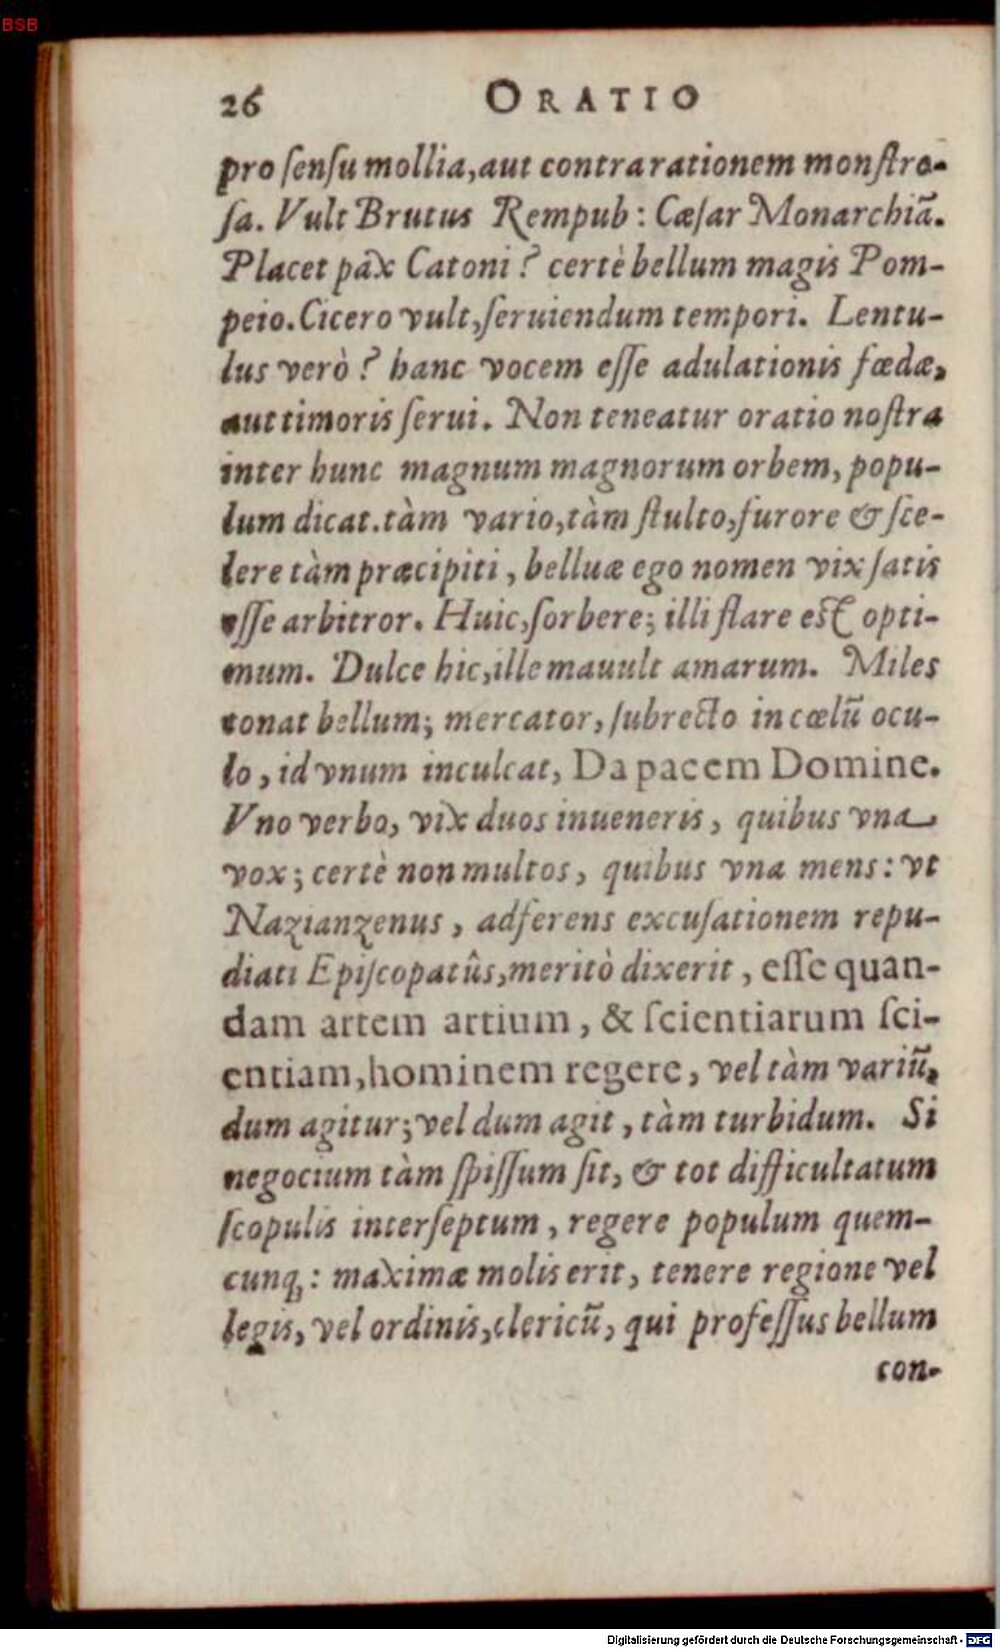 BSB
26 ORATIO
pro ſenſu mollia, aut contra rationem monſtro-
ſa. Vult Brutus Rempub: Cæſar Monarchiã.
Placet pax Catoni? certè bellum magis Pom-
peio. Cicero vult, ſeruiendum tempori. Lentu-
lus verò? hanc vocem eſſe adulationis fœdæ,
aut timoris ſerui. Non teneatur oratio noſtra
inter hunc magnum magnorum orbem, popu-
lum dicat. tàm vario, tàm ſtulto, furore & ſce-
lere tàm præcipiti, belluæ ego nomen vix ſatis
eſſe arbitror. Huic, ſorbere; illi flare eſt opti-
mum. Dulce hic, ille mauult amarum. Miles
tonat bellum; mercator, ſubrecto in cœlũ ocu-
lo, id vnum inculcat, Da pacem Domine.
Vno verbo, vix duos inueneris, quibus vna
vox; certè non multos, quibus vna mens: vt
Nazianzenus, adferens excuſationem repu-
diati Epiſcopatûs, meritò dixerit, eſſe quan-
dam artem artium, & ſcientiarum ſci-
entiam, hominem regere, vel tàm variũ,
dum agitur; vel dum agit, tàm turbidum. Si
negocium tàm ſpiſſum ſit, & tot difficultatum
ſcopulis interſeptum, regere populum quem-
cunq;: maximæ molis erit, tenere regione vel
legis, vel ordinis, clericũ, qui profeſſus bellum
con-
Digitalisierung gefördert durch die Deutsche Forschungsgemeinschaft - DFG